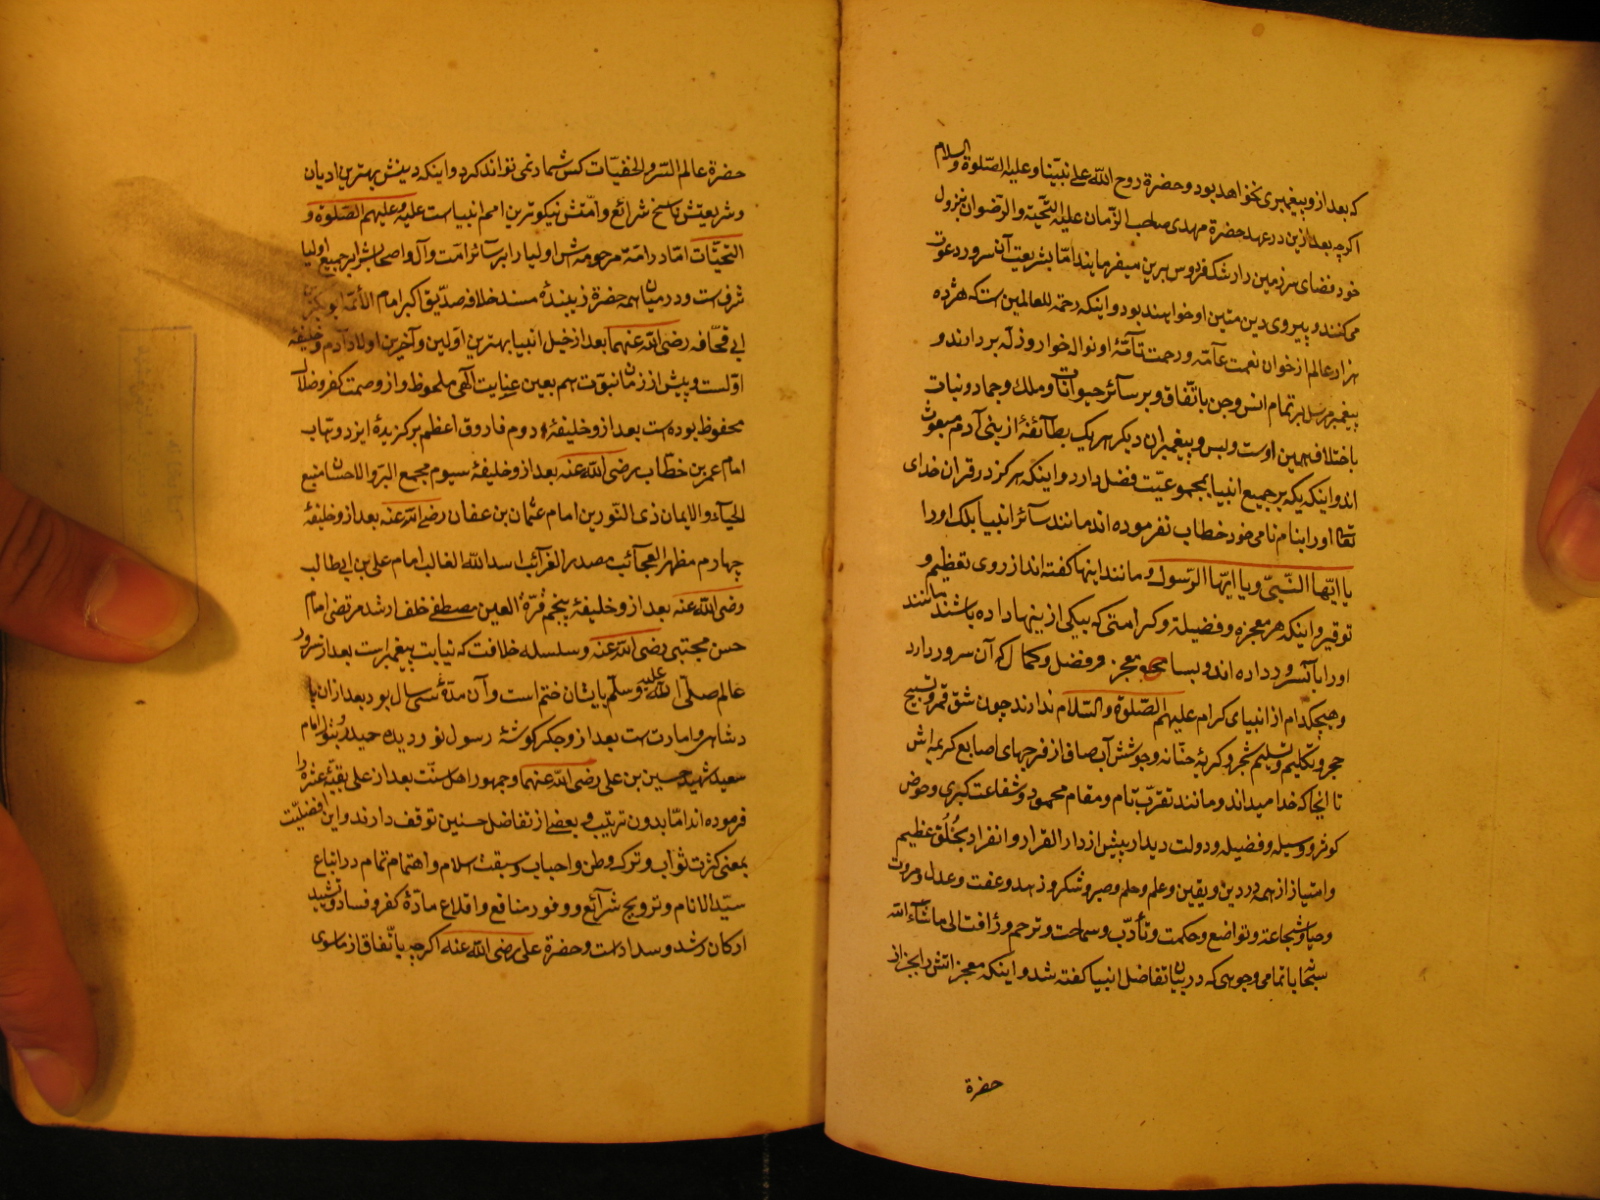 که بعد ازو پیغمبری نخواهد بود و حضرة روح الله علی نبینا و علیه الصّلوة والسلام
اکرچه بعد ازین در عهد حضرة مهدی صاحب الزّمان علیه التّحیّة والرّضوان بنزول
خود فضای سرزمین را رشک فردوس برین میفرمایند امّا بشریعت آن سرور دعوت
میکنند و پیروی دین متین او خواهند بود و اینکه رحمة للعالمین است که هژده
هزار عالم از خوان نعمت عآمّه و رحمت تآمّهٔ او نواله خوار و زلّه بردارند و
پیغمبر مرسل بر تمام انس و جن باتّفاق و بر سآئر حیوانات و ملک و جماد و نبات
باختلاف همین اوست و بس و پیغمبران دیکر هر یک بطآئفهٔ از بنی آدم مبعوث
اند و اینکه یکه بر جمیع انبیا بمجموعیّت فضل دارد و اینکه هرکز در قران خدای
تعالی او را بنام نامی خود خطاب نفرموده اند مانند سآئر انبیا بلک او را
یا ایّها النّبیّ و یا ایّها الرّسول و مانند اینها کفته اند از روی تعظیم و
توقیر و اینکه هر معجزه و فضیلة و کرامتی که بیکی از ینها داده باشند مانند
او را با آنسرور داده اند و بسا معجزه و فضل و کمال که آن سرور دارد
و هیچکدام از انبیای کرام علیهم الصّلوة والسّلام ندارند چون شقّ قمر و تسبیح
حجر و تکلیم و تسلیم شجر و کریهٔ حنّانه و جوشش آب صاف از فرجهای اصابع کریمه اش
تا آنجا که خدا میداند و مانند تقرّب تام و مقام محمود و شفاعت کبری و حوض
کوثر و وسیله و فضیله و دولت دیدار پیش از دار القرار و انفراد بخُلُق عظیم
و امتیاز از همه در دین و یقین و علم و حلم و صبر و شکر و زهد و عفت و عدل و مروت
و حیا و شجاعة و تواضع و حکمت و تأدّب و سماحت و ترحم و رأفت الی ماشآء الله
سبحانه با تمامی وجوهی که در بیان تفاضل انبیا کفته شد و اینکه معجزاتش را بجز از
حضرة
حضرة عالم السّر و الخفیّات کس شمار نمی تواند کرد و اینکه دینش بهترین ادیان
و شریعتش ناسخ شرائع و امّتش نیکوترین امم انبیاست علیه و علیهم الصّلوة و
التحیّات امّا در امّة مرحومه اش اولیا را بر سآئر امّت و آل و اصحابش را بر جمیع اولیا
شرف است و در میان همه حضرة زیبندهٔ مسند خلافه صدّیق اکبر امام الأئمّه ابو بکر بن
ابی قحّافه رضی الله عنهما بعد از خیل انبیا بهترین اوّلین و آخرین اولاد آدم و خلیفهٔ
اوّلست و پیش از زمان نبوّت هم بعین عنایت الٓهی ملحوظ و از وصمت کفر و ضلال
محفوظ بوده است بعد ازو خلیفهٔ دوم فاروق اعظم برکزیدهٔ ایزد وهّاب
امام عمر بن خطّاب رضی الله عنه بعد ازو خلیفهٔ سیوم مجمع البرّ والاحسان منبع
الحیآء والایمان ذی النّورین امام عثمان بن عفان رضی الله عنه بعد ازو خلیفهٔ
چهارم مظهر العجآئب مصدر الغرآئب اسد الله الغالب امام علی بن ابی طالب
رضی الله عنه بعد ازو خلیفهٔ پنجم قرّة العین مصطفی خلف ارشد مرتضی امام
حسن مجتبی رضی الله عنه و سلسله خلافت که نیابت پیغمبر است بعد از سرور
عالم صلّی الله علیه و سلّم بایشان ختم است و آن مدّة سی سال بود بعد از ان پا
دشاهی و امارت است بعد ازو جکر کوشهٔ رسول نور دیده حیدر و بتول امام
سعید شهید حسین بن علی رضی الله عنهما و جمهور اهل سنّت بعد از علی بقیّهٔ عشره را
فرموده اند امّا بدون ترتیب و بعضی از تفاضل حسنین توقف دارند و این افضلیّت
بمعنی کثرت ثواب و ترک وطن و احباب و سبقت اسلام و اهتمام تمام در اتباع
سیّد الانام و ترویج شرآئع و وفور منافع و اقلاع مادّهٔ کفر و فساد و تشیید
ارکان رشد و سداد است و حضرة علی رضی الله عنه اکرچه باتّفاق از ماسوی